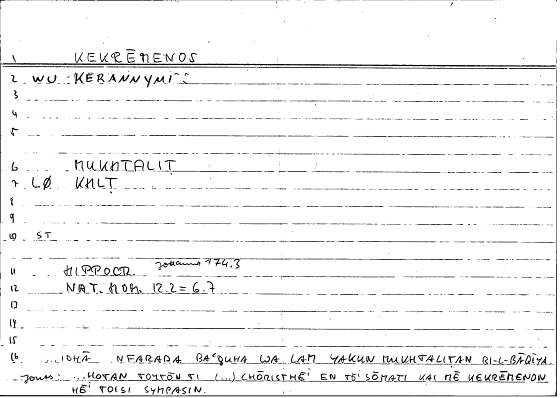 1 KEKRĒMENOS
2 WU : KERANNYMI
3
4
5
6 MUKHTALIṬ
7 LØ KHLṬ
8
9
10 ST
11 HIPPOCR.
12 NAT. HOM. 12.2 = 6.7
13
14
15
16 ... IDHĀ NFARADA BAʿḌUHA WA LAM YAKUN MUKHTALITAN BI-L-BĀQIYA
Jones: ... HOTAN TOUTŌN TI (...) CHŌRISTHĒI EN TŌI SŌMATI KAI MĒ KEKRĒMENON
HĒI TOISI SYMPASIN.